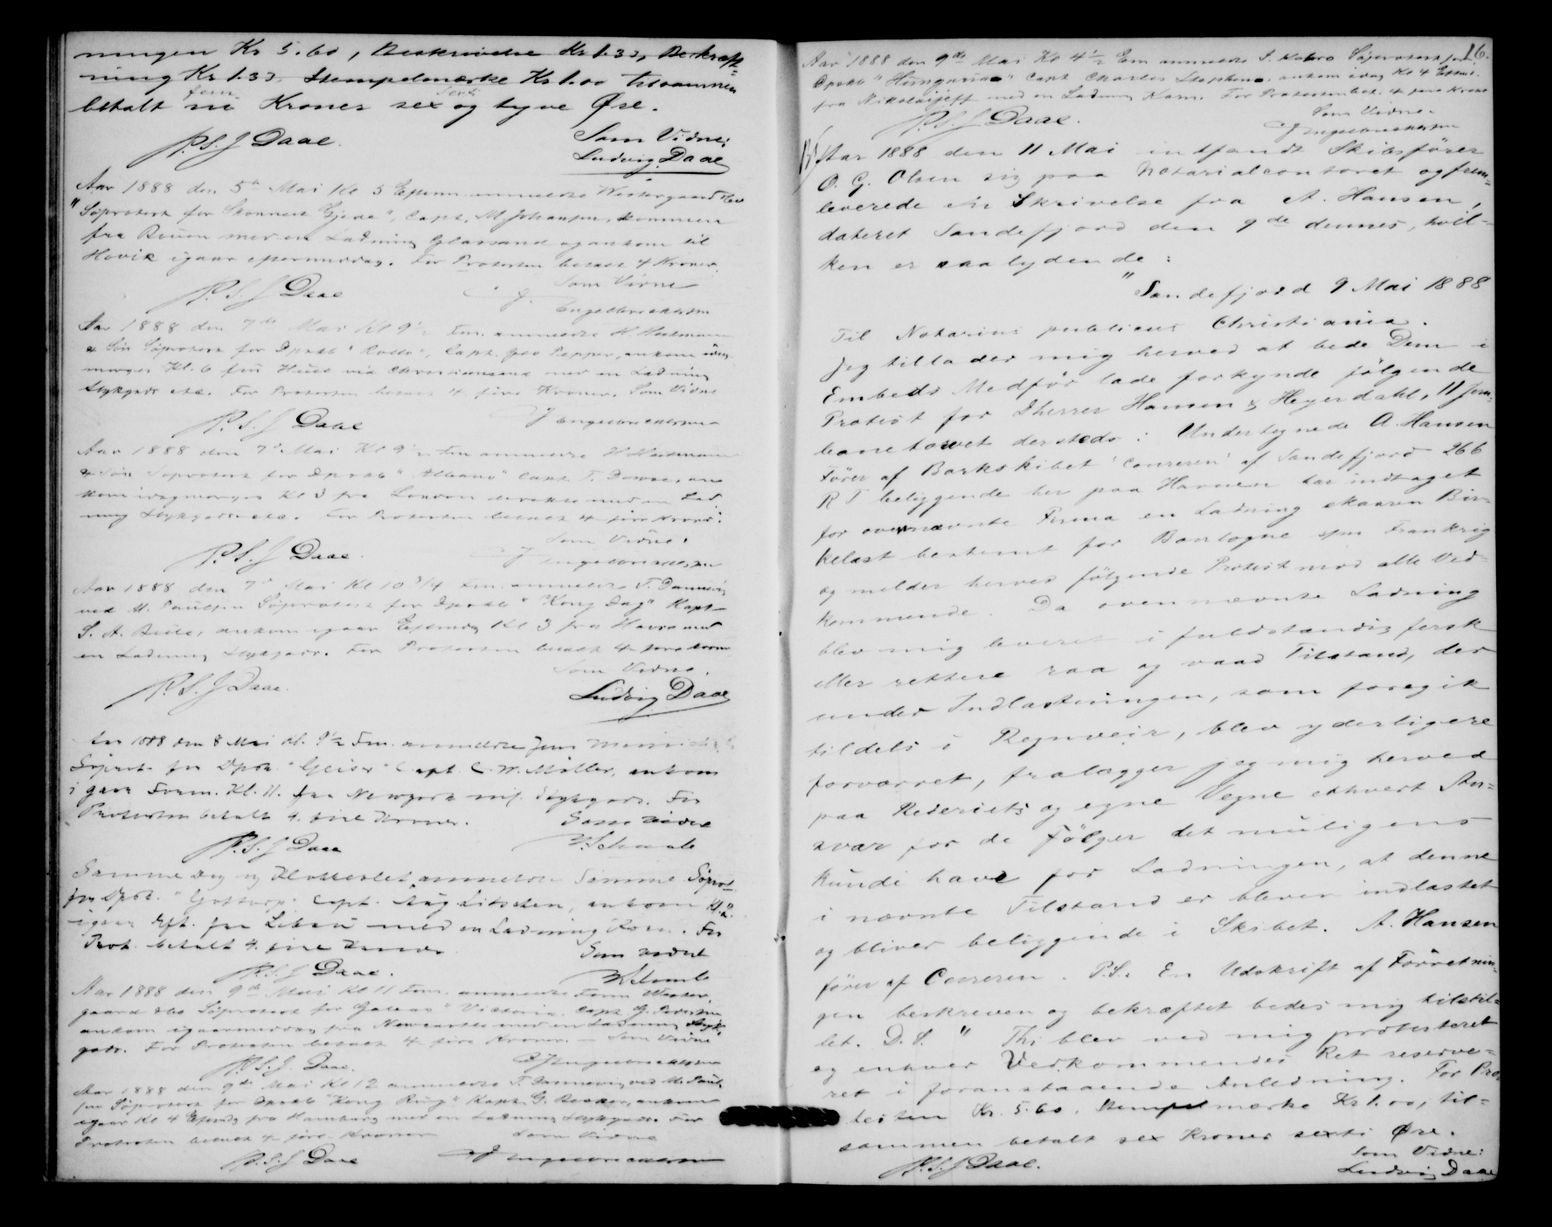 ningen Kr 5.60, Beskrivelse Kr 1.33, Bekræft-
ning Kr 1.33. Stempelmærke Kr 1.00 tilsammen
betalt ni Kroner sex og tyve Øre.
fem sexti
P.S.J Daae. Som Vidne:
Ludvig Daae
Aar 1888 den 5te Mai Kl 5 Efterm anmeldte Westergaard & Co
Søprotest for Skonnert , Capt. M Johansen, kommen
fra med en Ladning Glassand og ankom til
Høvik igaar eftermiddag. For Protesten betalt 4 Kroner.
P.S.J Daae Som Vidne
J. Engelbrechtsen
Aar 1888 den 7de Mai Kl 9½ Fm. anmeldte H Heitmann
& Søn Søprotest for Dpskb "Rollo", Capt. Geo Pepper, ankom idag
morges Kl. 6 fra Hull via Christiansand med en Ladning
Stykgods etc. For Protesten betalt 4 fire Kroner. Som Vidne
P.S.J Daae J Engelbrechtsen
Aar 1888 den 7de Mai Kl 9½ Fm anmeldte H Heitmann
& Søn Søprotest for Dpskb "Albano" Capt. T. , an
kom idag morges Kl 3 fra London med en Lad
ning Stykgods etc. For Protesten betalt 4 fire Kroner.
Som Vidne:
P.S.J Daae. J Engelbrechtsen
Aar 1888 den 7de Mai Kl 10 3/4 Fm. anmeldte T. Dannevig
ved M. Paulsen Søprotest for Dpskb "Kong Dag" Kapt
S. A. , ankom igaar Eftmdg Kl 3 fra Havre med
en Ladning Stykgods. For Protesten betalt 4 fire Kroner
Som Vidne.
P.S.J Daae. Ludvig Daae
Aar 1888 den 8 Mai Kl. 9½ Fm. anmeldte Jens
Søprot. for Dpsk. "Geiser" Capt. C. W. Møller, ankom
i gaar Form. Kl. 11. fra Newyork m/ Stykgods. For
Protesten betalt 4. fire Kroner. Som Vidne
P.S.J Daae
Samme Dag og Klokkeslet anmeldte Samme Søprot.
for Dpsk. "Gottorp" Capt. Aug , ankom Kl
igaar Eft. fra Libau med en Ladning Korn. For
Prot. betalt 4. fire Kroner Som Vidne
P.S.J Daae.
Aar 1888 den 9de Mai Kl 11 Fm. anmeldte Wester-
gaard & Co Søprotest for Galeas "Victoria" Capt G. Petersen
ankom igaarmiddag fra Newcastle med en Ladning Styk-
gods. For Protesten betalt 4 fire Kroner. – Som Vidne
P.S.J. Daae. J Engelbrechtsen
Aar 1888 den 9de Mai Kl 12 anmeldte T. Dannevig ved M. Paul-
sen Søprotest for Dpskb "Kong Ring" Kapt G. , ankom
igaar Kl 4 Eftmdg fra Hamburg med en Ladning Stykgods. For
Protesten betalt 4 fire Kroner Som Vidne
P.S.J Daae J Engelbrechtsen
16.
Aar 1888 den 9de Mai Kl 4½ Em anmeldte Søprotest for
Dpskb "Hungaria" Capt Charles Stephens, ankom idag Kl 4 Eftm.
fra Nikolajeff med en Ladning Korn. For Protesten bet. 4 fire Kroner
P.S.J Daae. Som Vidne.
J Engelbrechtsen
Aar 1888 den 11 Mai indfandt Skibsfører
O. G. Olsen sig paa Notarialcontoret og frem-
leverede en Skrivelse fra A. Hansen,
dateret Sandefjord den 9de dennes, hvil-
ken er saalydende:
"Sandefjord 9 Mai 1888
Til Notarius publicus Christiania.
Jeg tillader mig herved at bede Dem i
Embeds Medfør lade forkynde følgende
Protest for Dherrer Hansen & Heyerdahl, 11 Jern-
banetorvet dersteds: Undertegnede A. Hansen
Fører af Barkskibet "Coureren" af Sandefjord 266
R T beliggende her paa Havnen har indtaget
for ovennævnte Firma en Ladning skaaren Bir-
kelast bestemt for Boulogne s/m Frankrig
og melder herved følgende Protest mod alle Ved-
kommende. Da ovennævnte Ladning
blev mig leveret i fuldstændig fersk
eller rettere raa og vaad Tilstand, der
under Indlastningen, som foregik
tildels i Regnveir, blev yderligere
forværret, fralægger jeg mig herved
paa Rederiets og egne Vegne ethvert An-
svar for de Følger det muligens
kunde have for Ladningen, at denne
i nævnte Tilstand er bleven indlastet
og bliver beliggende i Skibet. A. Hansen
fører af Coureren. P.S. En Udskrift af Forretnin-
gen beskreven og bekræftet bedes mig tilstil-
let. D.S." Thi blev ved mig protesteret
og enhver Vedkommendes Ret reserve-
ret i foranstaaende Anledning. For Pro-
testen Kr. 5.60. Stempelmærke Kr 1.00, til-
sammen betalt sex Kroner sexti Øre.
P.S.J Daae. Som Vidne:
Ludvig Daae